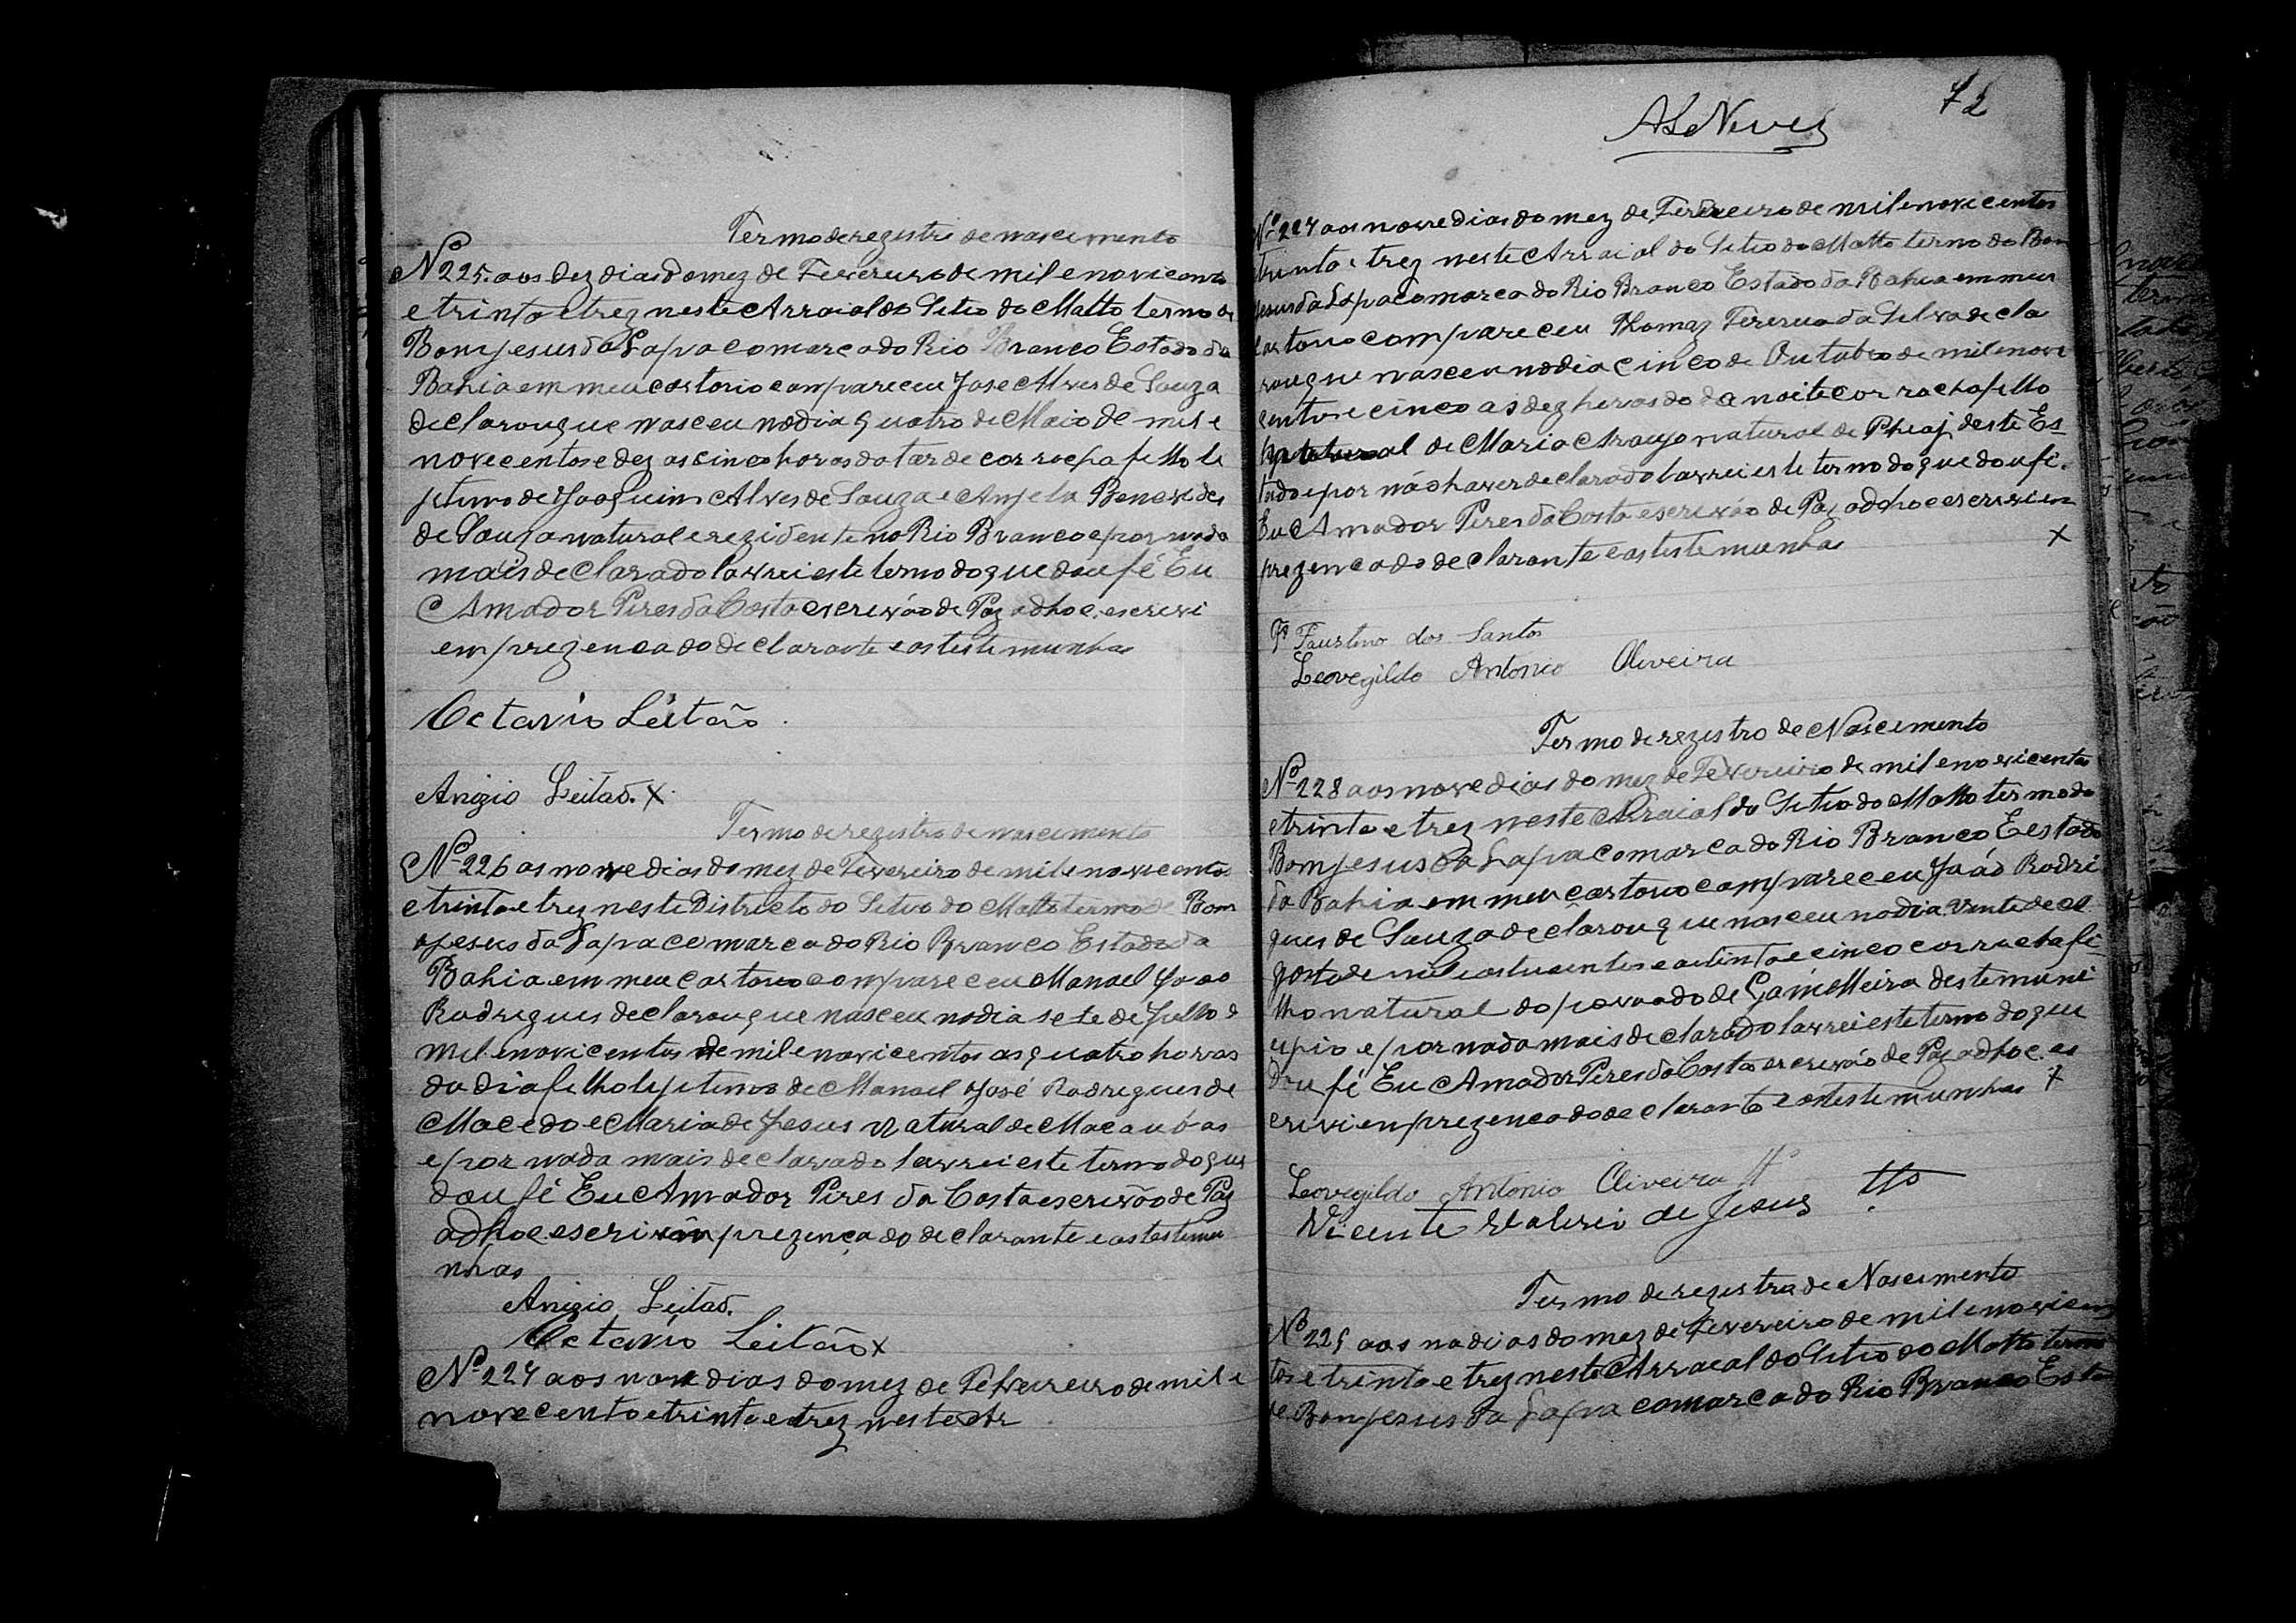 Termo de registro de nascimento
Nº 225. aos Dez dias do mez de Fevereiro de mil e novicentos
e trinta e trez neste Arraial do Sitio do Matto termo de
Bom jesus da Lapa comarca do Rio Branco Estado da
Bahia em meu cartorio compareceu Jose Alves de Souza
declarou que nasceu no dia quatro de Maio de mil e
novecentos e dez as cinco horas da tarde cor rocha filho le
jetimo de Joaquim Alves de Souza e Anjela Benevides
de Souza natural e rezidente no Rio Branco e por nada
mais declarado lavrei este termo do que dou fé Eu
Amador Pires da Costa escrivão de Paz adhoc. escrevi
em prezenca do declarante e as testemunhas
Octavio Leitão.
Anizio Leitaõ. X.
Termo de registro de nascimento
Nº 226 as nove dias do mez de Fevereiro de mil e novicentos
e trinta e trez neste Districto do Sitio do Matto termo de Bom
jesus da Lapa comarca do Rio Branco Estado da
Bahia em meu cartorio compareceu Manoel João
Rodrigues declarou que nasceu no dia sete de Julho d
mil e novicentos de mil e novicentos as quatro horas
do dia filho lejitimo de Manoel José Rodrigues de
Macedo e Maria de Jesus natural de Macaubas
e por nada mais declarado lavrei este termo do que
dou fé Eu Amador Pires da Costa escrivão de Paz
adhoc escrivi em prezença do declarante e as testemu
nhas
Anizio Leitaõ.
Octavio Leitão x
Nº 227 aos nove dias do mez de Fevereiro de mil e
novecento e trinta e trez neste Ar
72
ALeNeves
Nº 227 aos nove dias do mez de Fevereiro de mil e novicentos
trinta e trez neste Arraial do Sitio do Matto termo do Bom
jesus da Lapa comarca do Rio Branco Estado da Bahia em meu
cartorio compareceu Thomaz Fereira da Silva decla
rou que nasceu no dia cinco de Outubro de mil e nove
centos e cinco as dez horas do da noite cor rocha filho
natural de Maria Araujo natural de deste Es
tado e por não haver declarado lavrei este termo do que dou fé.
Eu Amador Pires da Costa escrivão de Paz adhoc escrevi em
prezenca do declarante e as testemunhas x
Faustino dos Santos
Leovegildo Antonio Oliveira
Termo de registro de Nascimento
Nº 228 aos nove dias do mez de Fevereiro de mil e novicentos
e trinta e trez neste Arraial do Sitio do Matto termo do
Bom jesus da Lapa comarca do Rio Branco Eestado
da Bahia em meu cartorio compareceu Joáo Rodri
gues de Souza declarou que nasceu no dia vinte de A
gosto de mil e oitucentos e oitinta e cinco cor rocha fi-
lho natural do povoado de Gamelleira deste muni
cipio e por nada mais declarado lavrei este termo do que
dou fé Eu Amador Pires da Costa escrivão de Paz adhoc. es
crevi em prezenca do declarante e as testemunhas x
Leovegildo Antonio Oliveira
Vicente Valerio de Jesus
Termo de registro de Nascimento
Nº 229 aos no dias do mez de Fevereiro de mil e novicen
tos e trinta e trez neste Arraial do Sitio do Matto termo
de Bom jesus da Lapa comarca do Rio Branco Esta